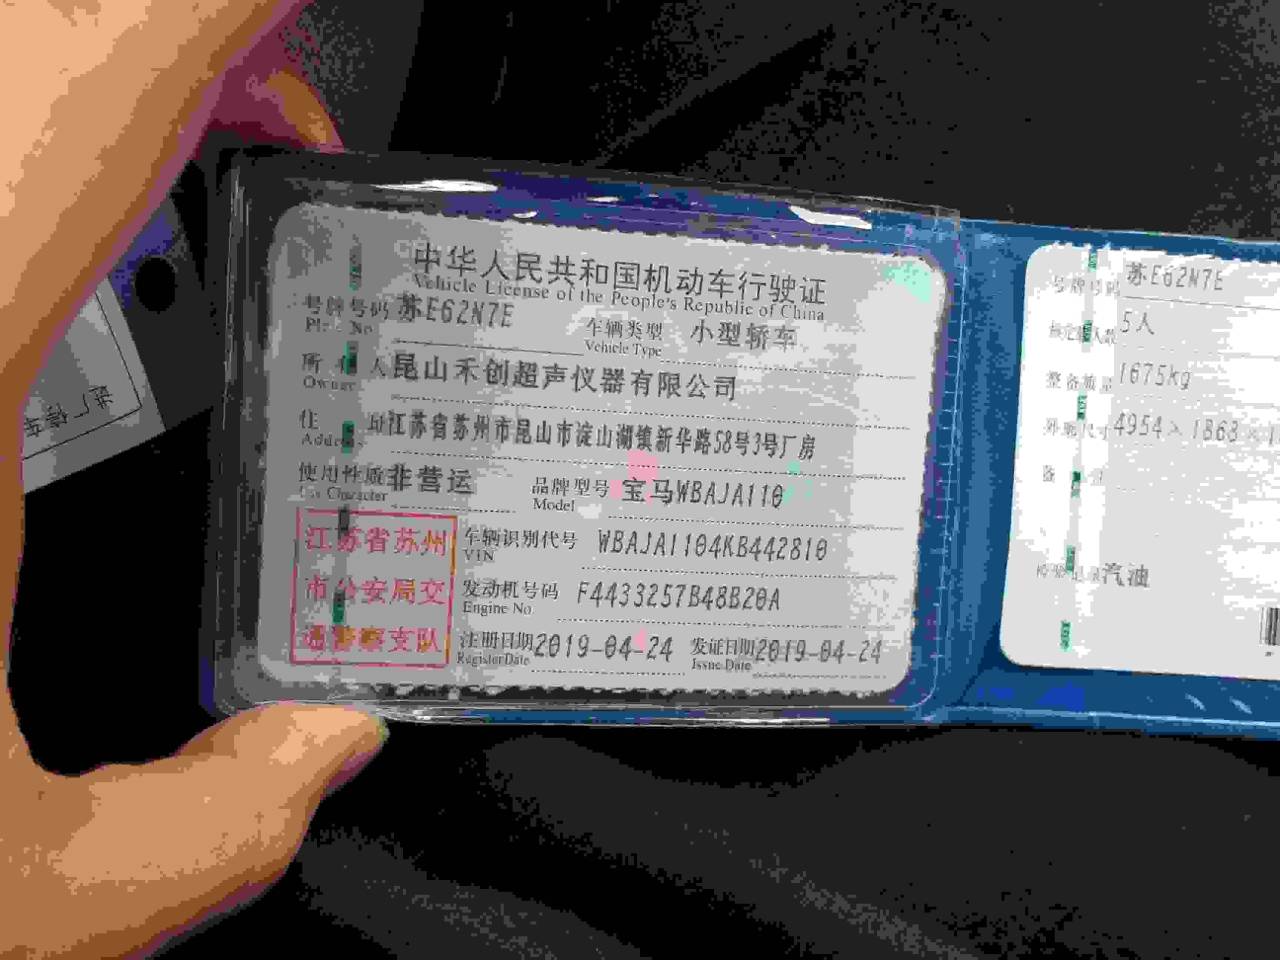 中华人民共和国机动车行驶证
Vehicle License of the People's Republic of China
号牌号码 苏E62N7E 车辆类型 小型轿车
Plate No. Vehicle Type
所有人 昆山禾创超声仪器有限公司
Owner
住址 江苏省苏州市昆山市淀山湖镇新华路58号3号厂房
Address
使用性质 非营运 品牌型号 宝马WBAJA110
Use Character Model
江苏省苏州
市公安局交
通警察支队
车辆识别代号 WBAJA1104KB442810
VIN
发动机号码 F4433257B48B20A
Engine No.
注册日期 2019-04-24 发证日期 2019-04-24
Register Date Issue Date
号牌号码 苏E62N7E
核定载人数 5人
整备质量 1675kg
外廓尺寸 4954×1868×1
备
汽油
进厂停车